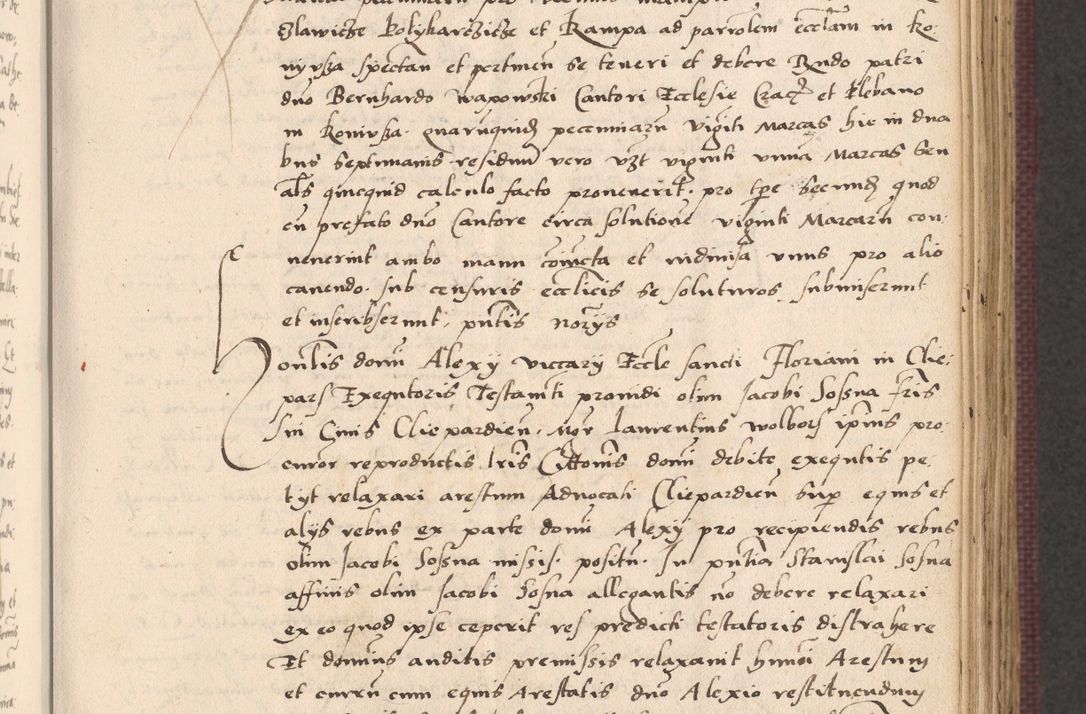 Slawicze Kolykarczicze et Rampa ad parrolem eccl̃am in ko
nyvsza spectan et pertinen se teneri et debere Rñdo patri
dño Bernhardo Wapowski Cantori Ecclesie Crac̃ et Plebano
in Konivsza. quarũquid pecuniarũ viginti Marcas hic in dua
bus septimanis residuũ vero vzt viginti vnna Marcas Gen
als quicquid calculo facto provenerit. pro tp̃e secund quod
cũ prefato dño Cantore circa solutionẽ viginti Marcarũ con
venerint ambo manu cõiucta et indivisa vnus pro alio
cavendo. sub censuris ecc̃licis se soluturos submiserunt
et inscribserunt, pñtis norys
Honlis domĩ Alexy viccary Eccle sancti Floriani in Clie
pars Exequtoris Testamti providi olim Jacobi Sosna fr̃is
sui Civis Cliepardien. Mgr Laurentius Wolbors ipius pro
curor reproductis lris Citt̃onis domĩ debite exequtis pe
tyt relaxari arestum Advocati Cliepardieñ sup equis et
alys rebus ex parte domĩ Alexy pro recipiendis rebus
olim Jacobi Sosna missis. positũ. In pñtia Stanislai Sosna
affinis olim Jacobi Sosna allegantis nõ debere relaxari
ex eo quod ipse ceperit res predicti testatoris distrahere
Et domus auditis premissis relaxavit humõi Arestum
et currũ cum equis Arestatis dño Alexio restituendum